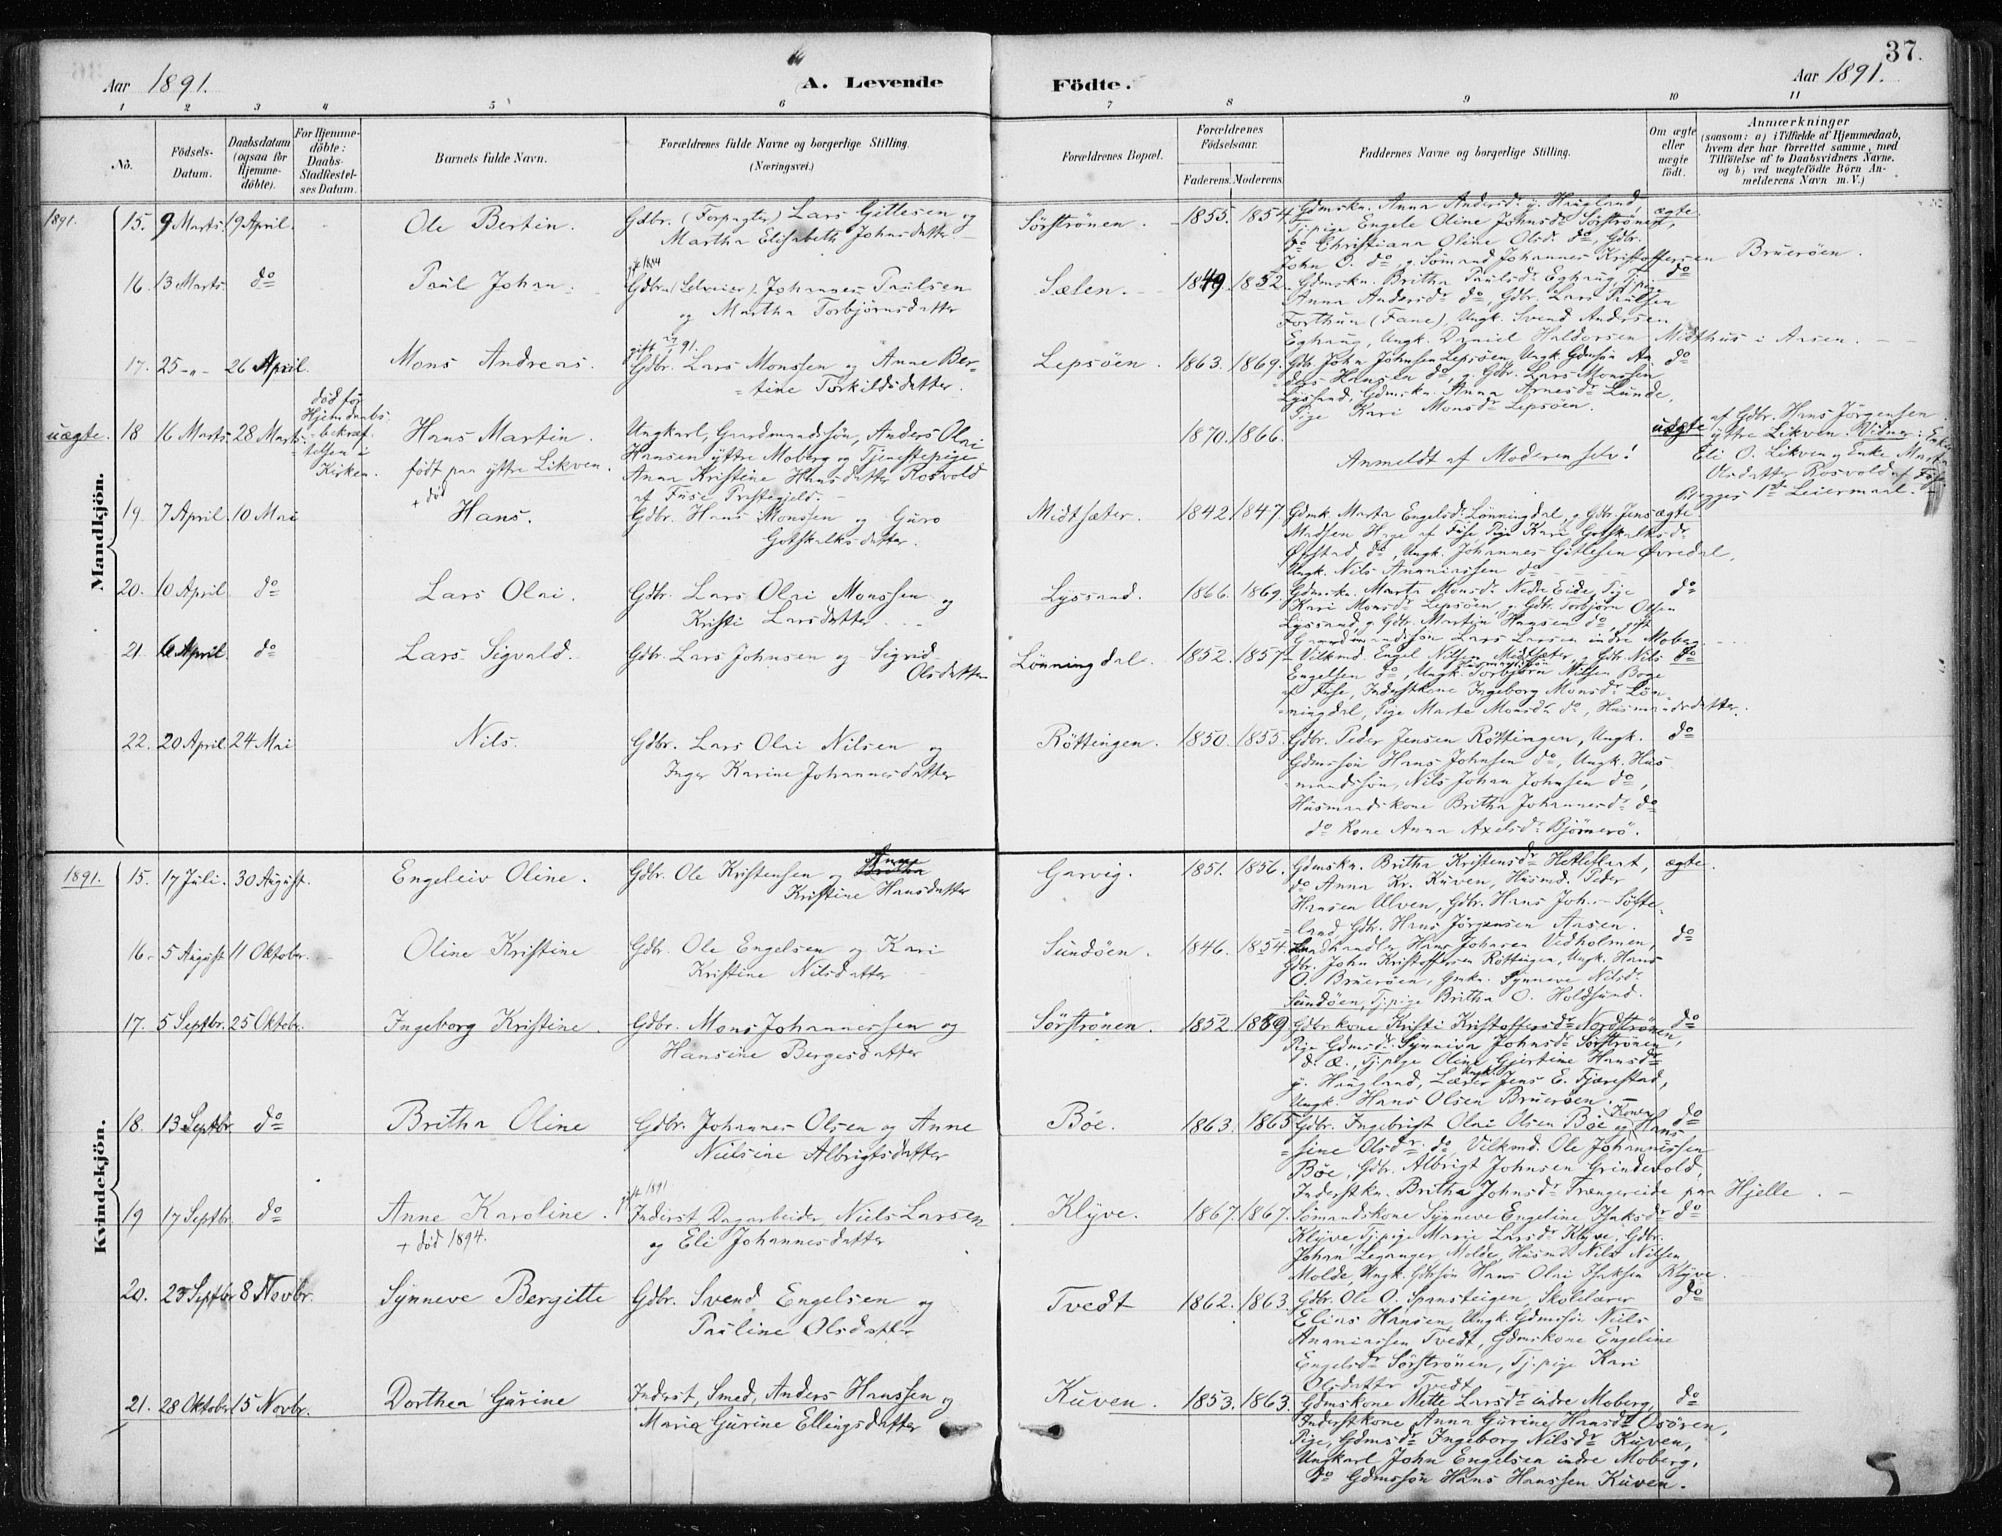 37.
Aar 1891.
A. Levende
Födte.
Aar 1891.
1 2 3 4 5 6 7 8 9 10 11
No.
Födsels-
Datum.
Daabsdatum
(ogsaa for
Hjemme-
döbte).
For Hjemme-
döbte:
Daabs-
Stadfæstel-
ses Datum.
Barnets fulde Navn.
Forældrenes fulde Navne og borgerlige Stilling.
(Næringsvei.)
Forældrenes Bopæl.
Forældrenes
Födselsaar.
Faderens. Moderens.
Faddernes Navne og borgerlige Stilling.
Om ægte
eller
uægte
født.
Anmærkninger
(saasom: a) i Tilfælde af Hjemmedaab,
hvem der har forrettet samme, med
Tilföielse af to Daabsvidners Navne.
og b) ved uægtefödte Börn An-
melderens Navn m. V.)
Mandkjön.
1891. 15. 9 Marts. 19 April. Ole Bertin. Gdbr. (Forpagter) Lars Gittlesen og
Martha Elisabeth Johnsdatter
Sørstrønen. 1855. 1854. Gdmskn. Anna Andersd. y. Haugland ægte
Tj.pige Engele Oline Johnsd. Sørstrønen,
do Christiana Oline Olsd. do, Gdbr.
John O. do, g. Sømand Johannes Kristoffersen Bruerøen.
16. 13 Marts do Paul Johan. Gdbr. (Selveier). Johannes Paulsen
og Martha Torbjørnsdatter
Sælen. 1849. 1852. Gdmskn. Britha Paulsdr Eghaug, Pige do
Anna Andersdr do, Gdbr. Lars Paulsen
Forthun (Fane), Ungk. Svend Andersen
Eghaug, Ungk. Daniel Haldorsen Midthus i Aasen.
17. 25 -"- 26 April. Mons Andreas. gift 91.
Gdbr. Lars Monssen og Anne Ber-
tine Torkildsdatter.
Lepsøen. 1863. 1869. Gdbr. John Johnsen Lepsøen, Ungk. Gdmsøn An- do
ders Hansen do, g. Gdbr. Lars Monssen
Lyssand. Gdmskn. Anna Arnesdr Lunde,
Pige Kari Monsdr Lepsøen.
uægte. 18 16 Marts. 28 Marts. død før
Hjemdaabs-
bekræf-
telsen i
Kirken.
Hans Martin.
født paa yttre Likven.
+ død
Ungkarl, Gaardmandssøn, Anders Olai
Hansen yttre Moberg og Tjenestepige
Anna Kristine Hansdatter Rosvold
af Fuse Prestegjeld.
1870. 1866. Anmeldt af Moderen selv! uægte
af Gdbr. Hans Jörgensen
yttre Likven. Vidner: Enke
Eli O. Likven og Enke Marta
Olsdatter Rosvold af Fuse
Begges 1ste Leiermaal.
19 7 April. 10 Mai Hans. Gdbr. Hans Monssen og Guro
Gotskalksdatter.
Midtsæter. 1842. 1847. Gdmk. Marta Engelsd. Lønningdal, g. Gdbr. Jens ægte.
Madsen Hage af Fuse, Pige Kari Gotskalksdr
Øvstad, do, Ungk. Johannes Gitlesen Øvredal,
Ungk. Nils Ananiassen do
20. 10 April do Lars Olai. Gdbr. Lars Olai Monssen og
Kristi Larsdatter.
Lyssand. 1866. 1869. Gdmskn. Marta Monsdr Nedre Eide, Pige do
Kari Monsdr Lepsøen, g. Gdbr. Torbjørn Olsen
Lyssand, g. Gdbr. Martin Hansen do, gift
Gaardmandssøn Lars Larsen indre Moberg
21 6 April do Lars Sigvald. Gdbr. Lars Johnsen og Sigrid
Olsdatter
Lønningdal. 1852. 1857. Vilkmd. Engel Nilsen Midtsæter, Gdbr. Nils do
Engelsen do, Ungk. Husmandssøn Torbjørn Nilsen Boge
af Fuse, Inderstkone Ingeborg Monsdr Løn-
ningdal, Pige Marta Monsdr do, Husmandsdatter.
22. 20 April. 24 Mai Nils. Gdbr. Lars Olai Nilsen og
Inger Karine Johannesdatter
Røttingen. 1850. 1855. Gdbr. Peder Jensen Røttingen, Ungk. do
Gdmssøn Hans Johnsen do, Ungk. Hus-
mandssøn, Nils Johan Johnsen do,
Husmandskone Britha Johannesdr do
do Kone Anna Axelsdr Bjørnerø.
Kvindekjön.
1891. 15. 17 Juli. 30 August. Engeleiv Oline. Gdbr. Ole Kristensen og Anna
Kristine Hansdatter
Garvig. 1851. 1856. Gdmskn. Britha Kristensdr Hetleflaat, ægte.
do Anna Kr. Kuven, Husmd. Peder
Hansen Ulven, Gdbr. Hans Joh. Søfte-
land, Gdbr. Hans Jörgensen Aasen.
16. 5 August 11 Oktober. Oline Kristine Gdbr. Ole Engelsen og Kari
Kristine Nilsdatter
Sundøen. 1846. 1854. Landhandler Hans Johnsen Vedholmen, do
Gdbr. John Kristoffersen Røttingen, Ungk. Hans
O. Bruerøen, Gmkn. Synneve Nilsdr
Sundøen, Tj.pige Britha O. Holdsund.
17. 5 Septbr. 25 Oktobr. Ingeborg Kristine. Gdbr. Mons Johannessen og
Hansine Bergesdatter
Sørstrønen. 1852. 1859. Gdbrkone Kristi Kristoffersdr Nordstrønen, do
Pige Gdmsdr Synniva Johnsdr Sørstrønen
d. æ., Tj.pige Oline Gjertine Hansdr
y. Haugland, Lærer Ungk. Jens E. Tjærestad,
Ungk. Hans Olsen Bruerøen.
18. 13 Septbr do Britha Oline Gdbr. Johannes Olsen og Anne
Nielsine Albrigtsdatter
Bøe. 1863. 1865 Gdbr. Ingebrigt Olai Olsen Bøe og Konen Han- do
sine Olsdr do Vilkmd. Ole Johannessen
Bøe, Gdbr. Albrigt Johnsen Grindevold,
Inderstkn. Britha Johnsdr Trængereide paa Hjelle.
19 17 Septbr. do Anne Karoline.
+ død 1894.
gift 1891
Inderst Dagarbeider Niels Larsen
og Eli Johannesdatter
Klyve. 1867. 1867. Sømandskone Synneve Engeline Isaksdr do
Klyve Tj.pige Marie Larsdr Klyve, Gdbr.
Johan Leganger Molde, Husmd Nils Nilsen
Molde, Ungk. Gdmsøn Hans Olai Isaksen Klyve.
20. 23 Septbr 8 Novbr. Synneve Bergitte Gdbr. Svend Engelsen og
Pauline Olsdatter
Tvedt 1862. 1863. Gdbr. Ole O. Spansteigen, Skolelærer do
Elias Hansen, Ungk. Gdmssøn Niels
Ananiassen Tvedt, Gdmskone Engeline
Engelsdr Sørstrønen, Tj.pige Kari
Olsdatter Tvedt
21. 28 Oktober 15 Novbr. Dorthea Gurine Inderst, Smed, Anders Hanssen og
Maria Gurine Ellingsdatter
Kuven. 1853. 1863. Gdmskone Mette Larsdr indre Moberg, do
Inderstkone Anna Gurine Hansdr Osøren,
Pige, Gdmsdr Ingeborg Nilsdr Kuven,
Ungkarl John Engelsen indre Moberg,
do Gdmssøn Hans Hanssen Kuven.